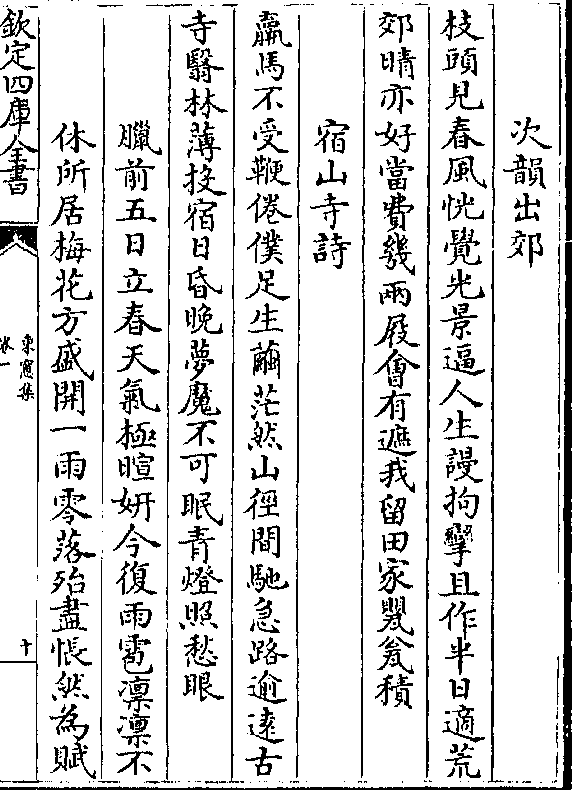 次韻出郊
枝頭見春風恍覺光景逼人生謾拘攣且作半日適荒
郊晴亦好當費幾兩屐會有遮我留田家甖瓮積
宿山寺詩
羸馬不受鞭倦僕足生繭茫然山徑間馳急路逾遠古
寺翳林薄投宿日昏晚夢魔不可眠青燈照愁眼
臘前五日立春天氣極暄妍今復雨雹凛凛不
休所居梅花方盛開一雨零落殆盡悵然為賦
欽定四庫全書
東窻集
卷一
十